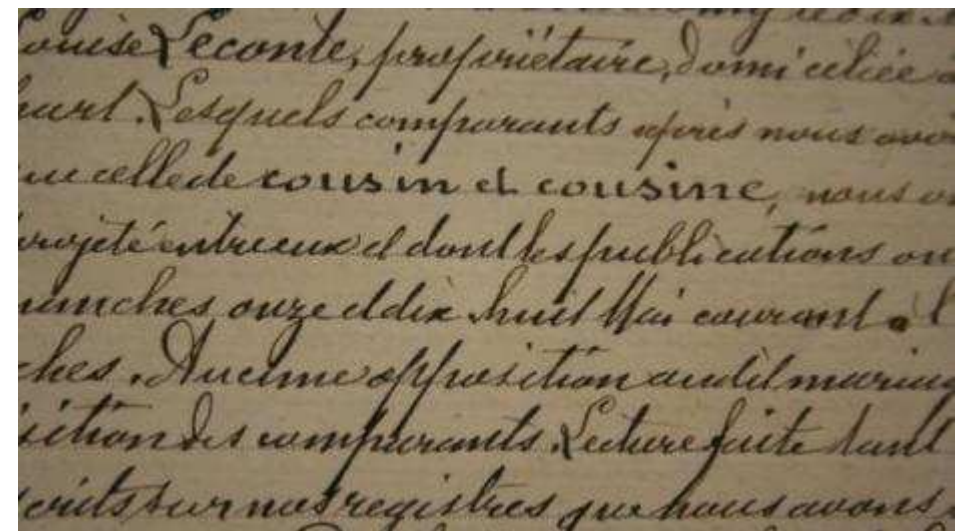 ouise Leconte, propriétaire, domiciliée à
hurt. Lesquels comparants après nous avoi
ue celle de cousin et cousine, nous on
projeté entre eux et dont les publications on
manches onze et dix huit Mai courant à l
ches. Aucune opposition audit mariag
sition des comparants. Lecture faite tant
crits sur nos registres que nous avons